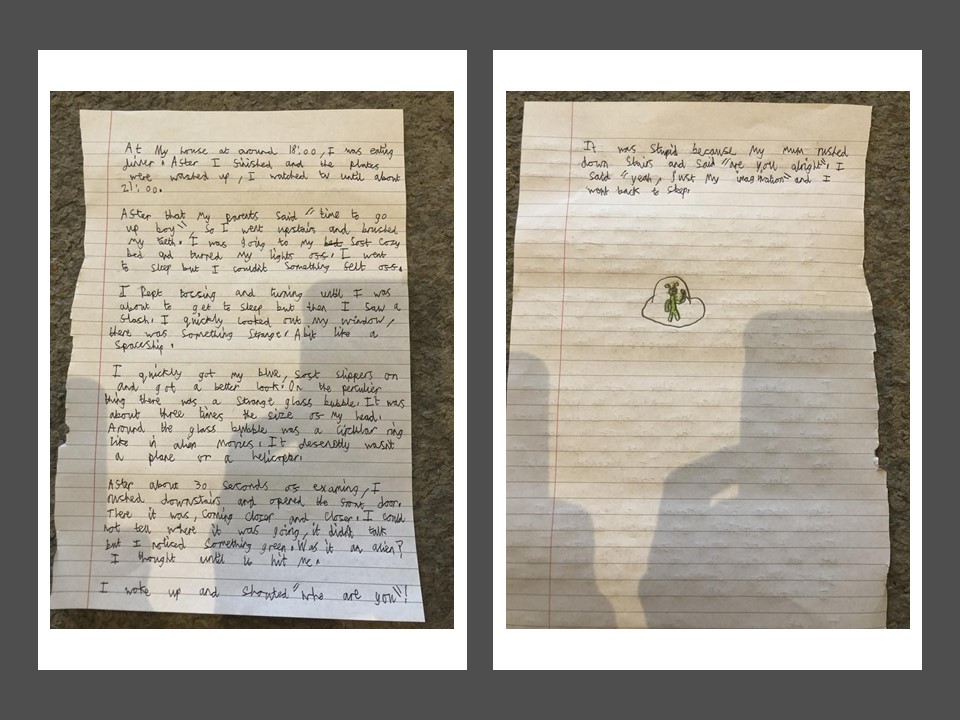 At My house at around 18:00, I was eating
dinner. After I finished and the plates
were washed up, I watched tv until about
21:00.
After that My parents said "time to go
up boy", so I went upstairs and brushed
my teeth. I was going to my bed soft cozy
bed and turned My lights off. I went
to sleep but I couldnt Something felt off.
I kept tossing and turning until I was
about to get to sleep but then I saw a
flash. I quickly looked out my window,
there was something strange. A bit like a
Spaceship.
I quickly got my blue, soft slippers on
and got a better look. On the peculier
thing there was a strange glass bubble. It was
about three times the size of my head.
Around the glass bubble was a circular ring
like in alien movies. It desenetly wasnt
a plane or a helicopter.
After about 30 seconds of examing, I
rushed downstairs and opened the front door.
There it was, coming closer and closer. I could
not tell where it was going, it didnt talk
but I noticed Something green. Was it an alien?
I thought until it hit me.
I woke up and shouted "who are you"!
It was stupid because My mum rushed
down stairs and said "are you alright". I
said "yeah, just my imagination" and I
went back to sleep.